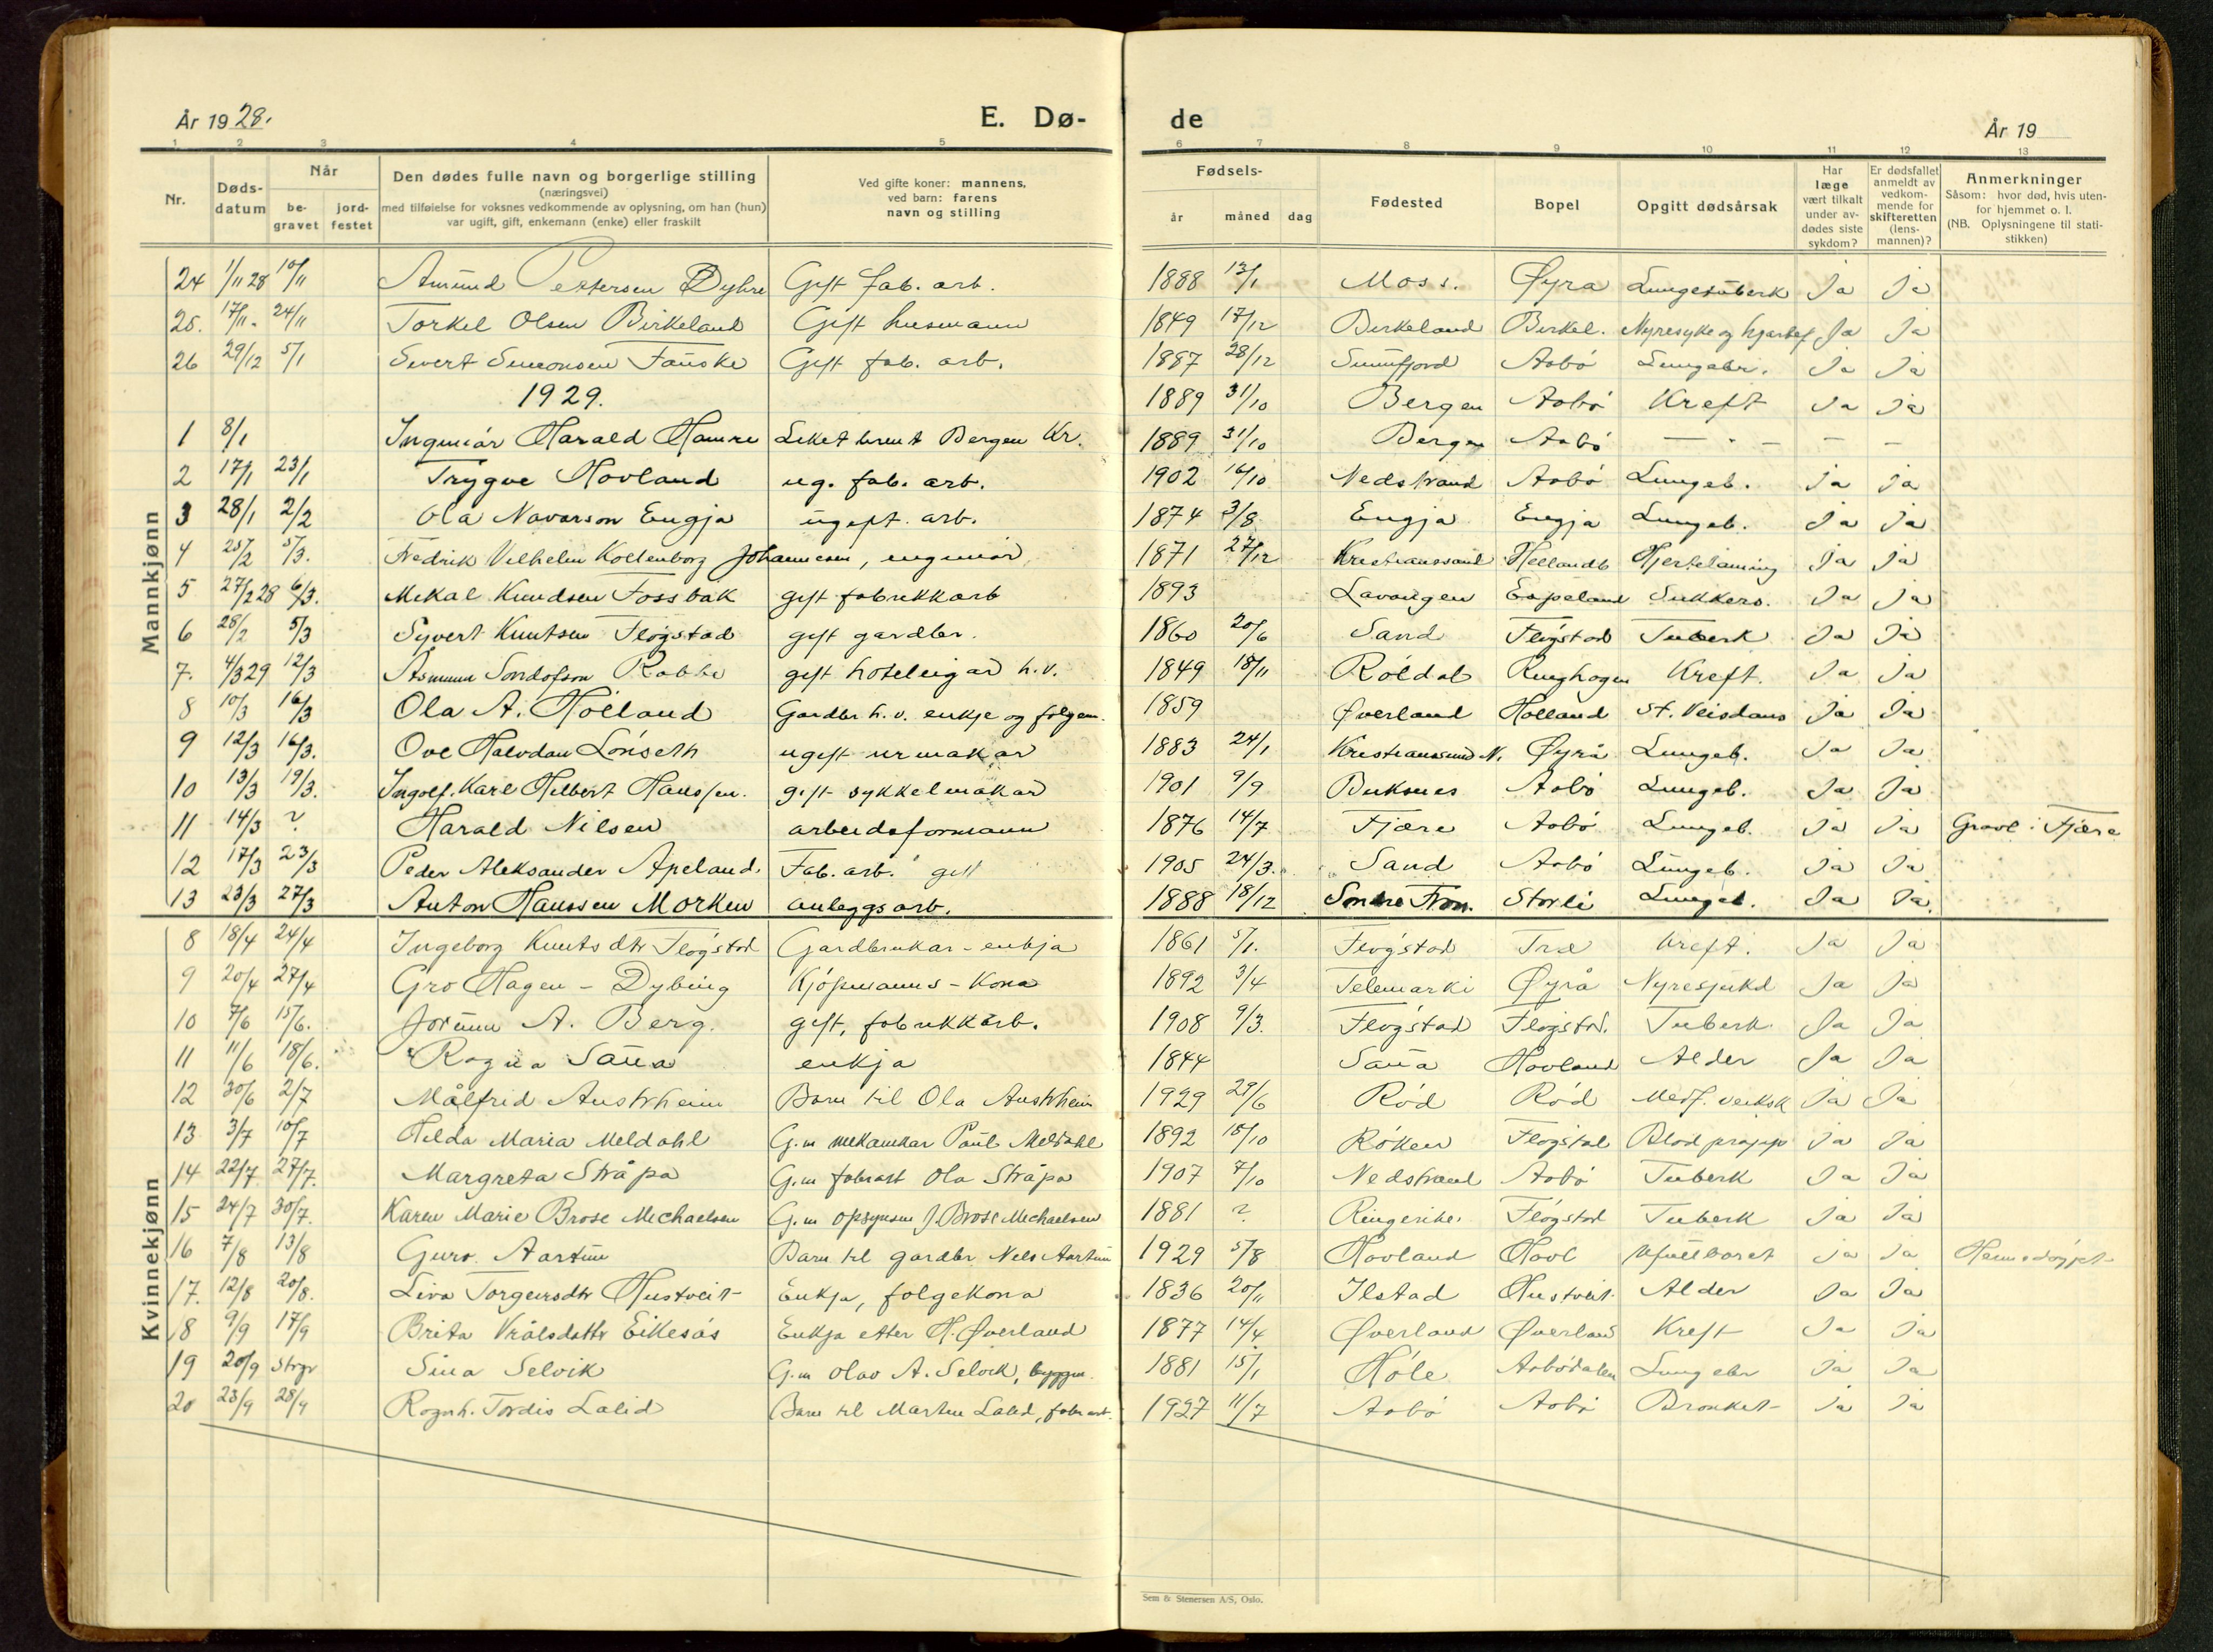 År 1928.
E. Dø-
1 2 3 4 5
Nr.
Døds-datum
Når
be-gravet
jord-festet
Den dødes fulle navn og borgerlige stilling
(næringsvei)
med tilføielse for voksnes vedkommende av oplysning, om han (hun)
var ugift, gift, enkemann (enke) eller fraskilt
Ved gifte koner: mannens,
ved barn: farens
navn og stilling
de
År 19
6 7 8 9 10 11 12 13
Fødsels-
år måned dag
Fødested
Bopel
Opgitt dødsårsak
Har læge vært tilkalt under av-dødes siste sykdom?
Er dødsfallet anmeldt av vedkom-mende for skifteretten (lens-mannen)?
Anmerkninger
Såsom: hvor død, hvis uten-for hjemmet o. l.
(NB. Oplysningene til stati-stikken)
Mannkjønn
24 1/11 28 10/11 Amund Pettersen Dyhre Gift fab. arb. 1888 13/1 Moss. Øyra Lungetuberk Ja Ja
25. 17/11. 24/11 Torkel Olsen Birkeland Gift husmann 1849 17/12 Birkeland Birkel. Nyresyke og hjartef Ja Ja
26 29/12 5/1 Sivert Simonsen Fauske Gift fab. arb. 1887 28/12 Sunnfjord Aabö Lungebr. Ja Ja
1929. 1889 31/10 Bergen Aabö Kreft Ja Ja
1 8/1 Ingeniör Harald Hamre Liket brent Bergen Kr. 1889 31/10 Bergen Aabö — " — — —
2 17/1 23/1 Trygve Hovland ug. fab. arb. 1902 16/10 Nedstrand Aabö Lungeb. ja ja
3 28/1 2/2 Ola Navarson Engja ugift. arb. 1874 3/8 Engja Engja Lungeb. Ja Ja
4 25/2 5/3. Fredrik Vilhelm Koltenborg Johannesen, engeniör 1871 27/12 Kristianssand Hellandb Hjertelaming Ja Ja
5 27/2 28 6/3. Mikal Knudsen Fossbak gift fabrikkarb 1893 Lavangen Eapeland Sukkers. Ja Ja
6 28/2 5/3 Syvert Knutsen Flögstad gift gardbr. 1860 20/6 Sand Flögstad Tuberk Ja Ja
7. 4/3 29 12/3 Asmunn Sondofson Rabbe gift hoteleigar h.v. 1849 18/11 Röldal Kreft. Ja Ja
8 10/3 16/3 Ola A. Hölland Gardbr h. v. enkje og folgem. 1859 Øverland Holland Ja Ja
9 12/3 16/3. Ove Halvdan Lönseth ugift urmakar 1883 24/1 Kristianssund N. Øyrå Lungeb. Ja Ja
10 13/3 19/3. Ingolf. Karl Helbert Hanssen. gift sykkelmakar 1901 9/9 Buksnes Aabö Lungeb. Ja Ja
11 14/3 ? Harald Nilsen arbeidsformann 1876 14/7 Fjære Aabö Lungeb. Ja Ja Gravl i Fjære
12 17/3 23/3 Peder Aleksander Apeland. Fab. arb. gift 1905 24/3. Sand Aabö Lungeb. Ja Ja
13 23/3 27/3 Anton Hanssen Morken anleggsarb. 1888 18/12 Söndre Fron. Storli Lungeb. Ja Ja
Kvinnekjønn
8 18/4 24/4 Ingeborg Knutsdtr Flögstad Gardbrukar-enkja 1861 5/1. Flögstad Træ Kreft. Ja Ja
9 20/4 27/4 Gro Hagen - Dybing Kjöpmanns-Kona 1892 3/4 Telemarki Øyrå Nyresjukd Ja Ja
10 7/6 15/6. Jorunn A. Berg. gift, fabrikkarb. 1908 9/3. Flögstad Flögstad. Tuberk. Ja Ja
11 11/6 18/6. Ragna Sana enkja 1844 Sana Hovland Alder Ja Ja
12 30/6 2/7 Målfrid Austrheim Barn til Ola Austrheim 1929 29/6 Röd Röd Medf. veiksk Ja Ja
13 3/7 10/7 Hilda Maria Meldahl G.m mekanikar Paul Meldahl 1892 18/10 Röken Flögstad Blodpropp Ja Ja
14 22/7 27/7. Margreta Stråpa G.m fabrarb Ola Stråpa 1907 7/10 Nedstrand Aabö Tuberk Ja Ja
15 24/7 30/7. Karen Marie Brose Michaelsen G.m opsynsm J Brose Michaelsen 1881 ? Ringerike. Flögstad Tuberk Ja Ja
16 7/8 13/8 Guro Aartun Barn til gardbr Nels Aartun 1929 5/8 Hovland Hovl Ufullboret Ja Ja Heimedöypt
17. 12/8 20/8. Liva Torgeirsdtr Hustveit Enkja, folgekona 1836 20/11 Ilstad Hustveit. Alder Ja Ja
18 9/9 17/9 Brita Vrålsdattr Eikesås Enkja etter H. Øverland 1877 14/4 Øverland Øverland Kreft Ja Ja
19 20/9 Sina Selvik G.m Olav A. Selvik, byggm. 1881 15/1 Höle Aabödalen Lungebr Ja Ja
20 23/9 28/9 Ragnh. Tordis Lalid Barn til Martin Lalid, fabr arb. 1927 11/7 Aabö Aabö Bronkit Ja Ja
Sem & Stenersen A/S, Oslo.